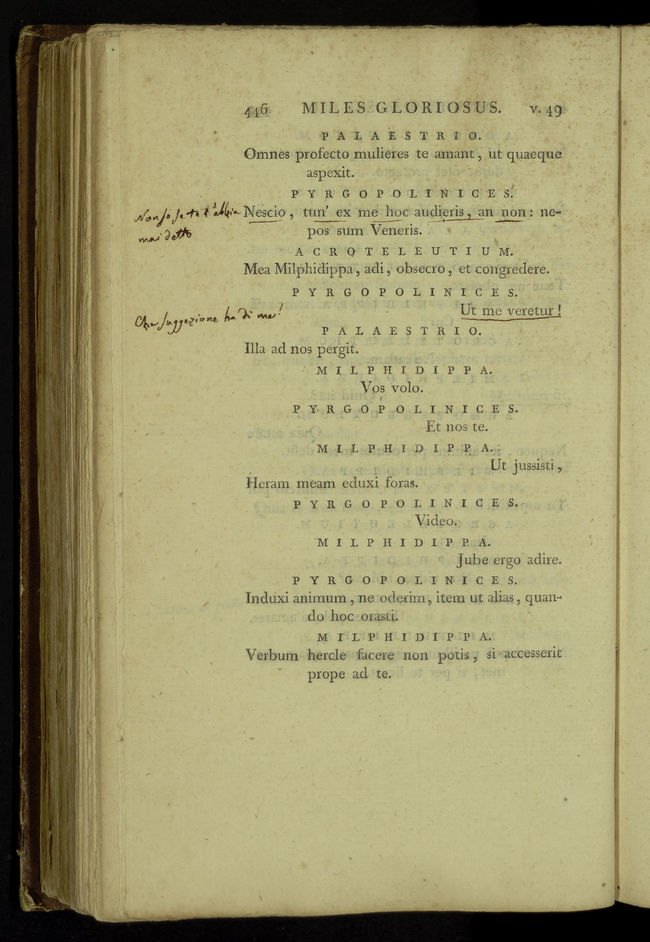 446 MILES GLORIOSUS. v. 49
PALAESTRIO.
Omnes profecto mulieres te amant, ut quaeque
aspexit.
PYRGOPOLINICES.
Non so se te l'abbia
mai detto
Nescio, tun' ex me hoc audieris, an non: ne-
pos sum Veneris.
ACROTELEUTIUM.
Mea Milphidippa, adi, obsecro, et congredere.
PYRGOPOLINICES.
Ut me veretur!
Che suggezione ha di me!
PALAESTRIO.
Illa ad nos pergit.
MILPHIDIPPA.
Vos volo.
PYRGOPOLINICES.
Et nos te.
MILPHIDIPPA.
Ut jussisti,
Heram meam eduxi foras.
PYRGOPOLINICES.
Video.
MILPHIDIPPA.
Jube ergo adire.
PYRGOPOLINICES.
Induxi animum, ne oderim, item ut alias, quan-
do hoc orasti.
MILPHIDIPPA.
Verbum hercle facere non potis, si accesserit
prope ad te.